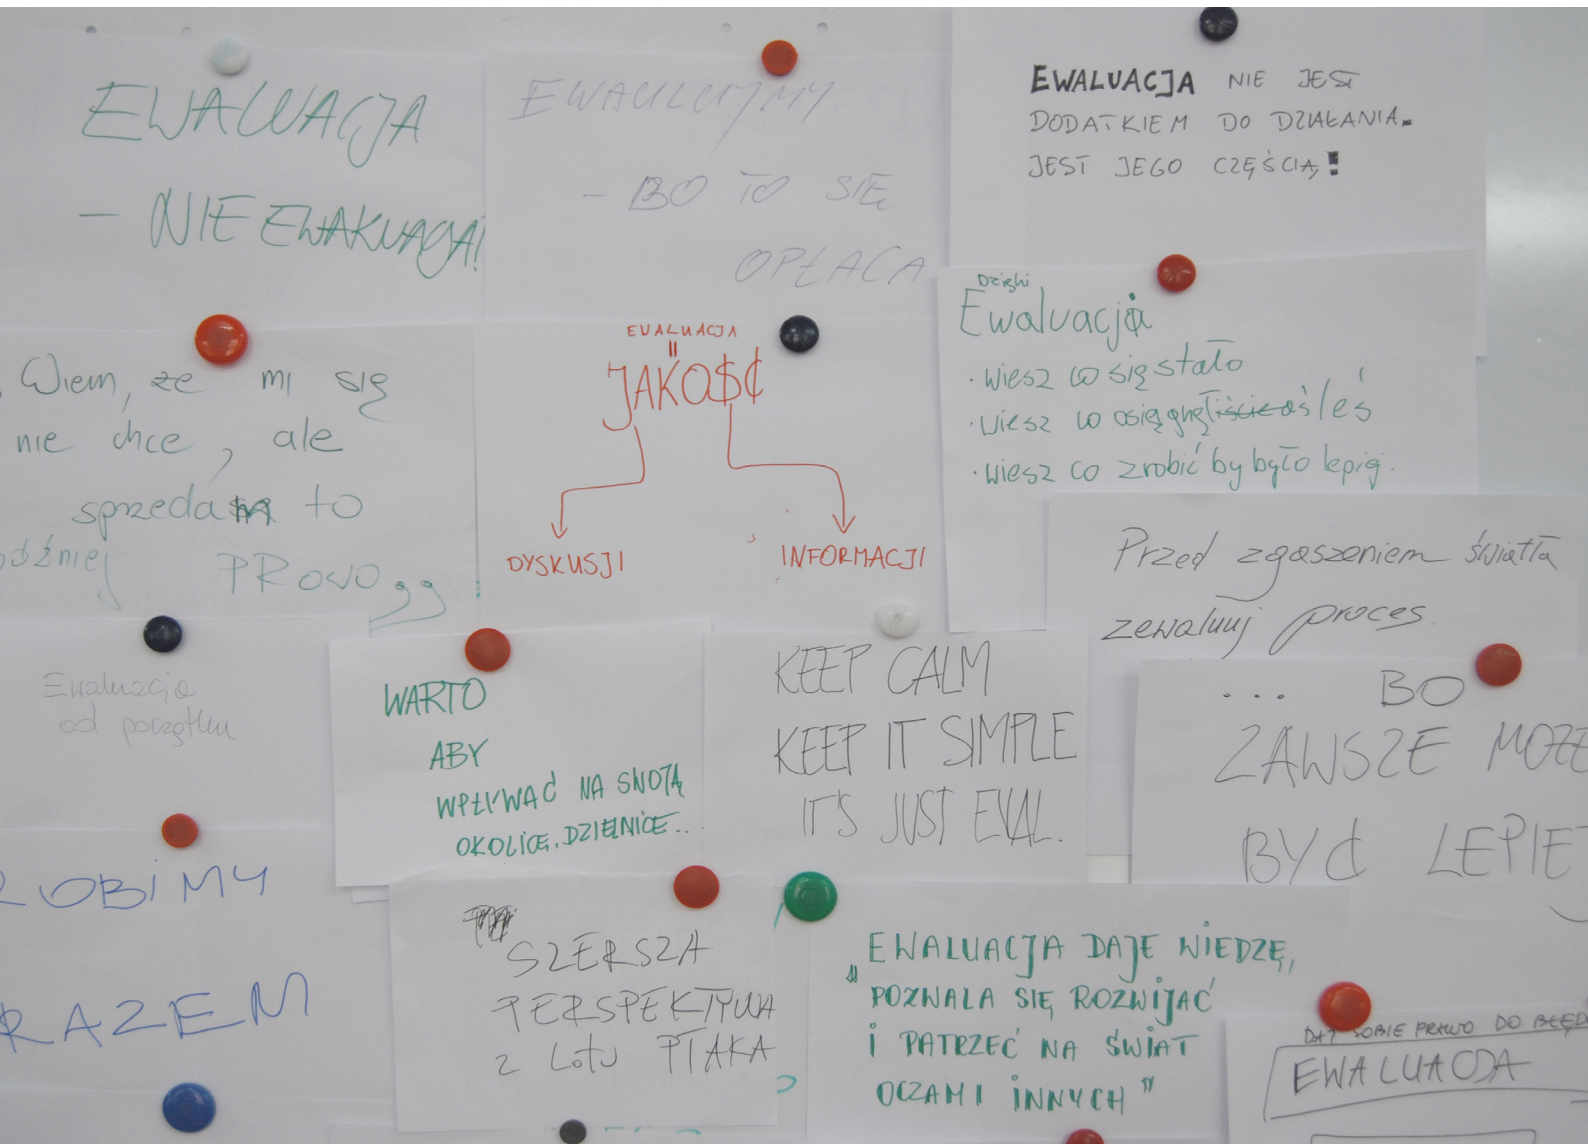 EWALUACJA
- NIE EWAKUACJA!
EWAULUJMY
- BO TO SIĘ
OPŁACA
EWALUACJA NIE JEST
DODATKIEM DO DZIAŁANIA.
JEST JEGO CZĘŚCIĄ!
Wiem, że mi się
nie chce, ale
sprzedam to
EWALUACJA
=
JAKO$¢
DYSKUSJI
INFORMACJI
Dzięki
Ewaluacji
· wiesz co się stało
· wiesz co osiągnęłaś/eś
· wiesz co zrobić by było lepiej.
Przed zgaszeniem światła
zewaluuj proces.
Ewaluacja
od początku
WARTO
ABY
WPŁYWAĆ NA SWOJĄ
OKOLICĘ, DZIELNICĘ...
KEEP CALM
KEEP IT SIMPLE
IT'S JUST EVAL.
... BO
ZAWSZE MOŻE
BYĆ LEPIEJ
ROBIMY
RAZEM
SZERSZA
PERSPEKTYWA
z Lotu PTAKA
„EWALUACJA DAJE WIEDZĘ,
POZWALA SIĘ ROZWIJAĆ
i PATRZEĆ NA ŚWIAT
OCZAMI INNYCH"
DAJ SOBIE PRAWO DO BŁĘDU
EWALUACJA